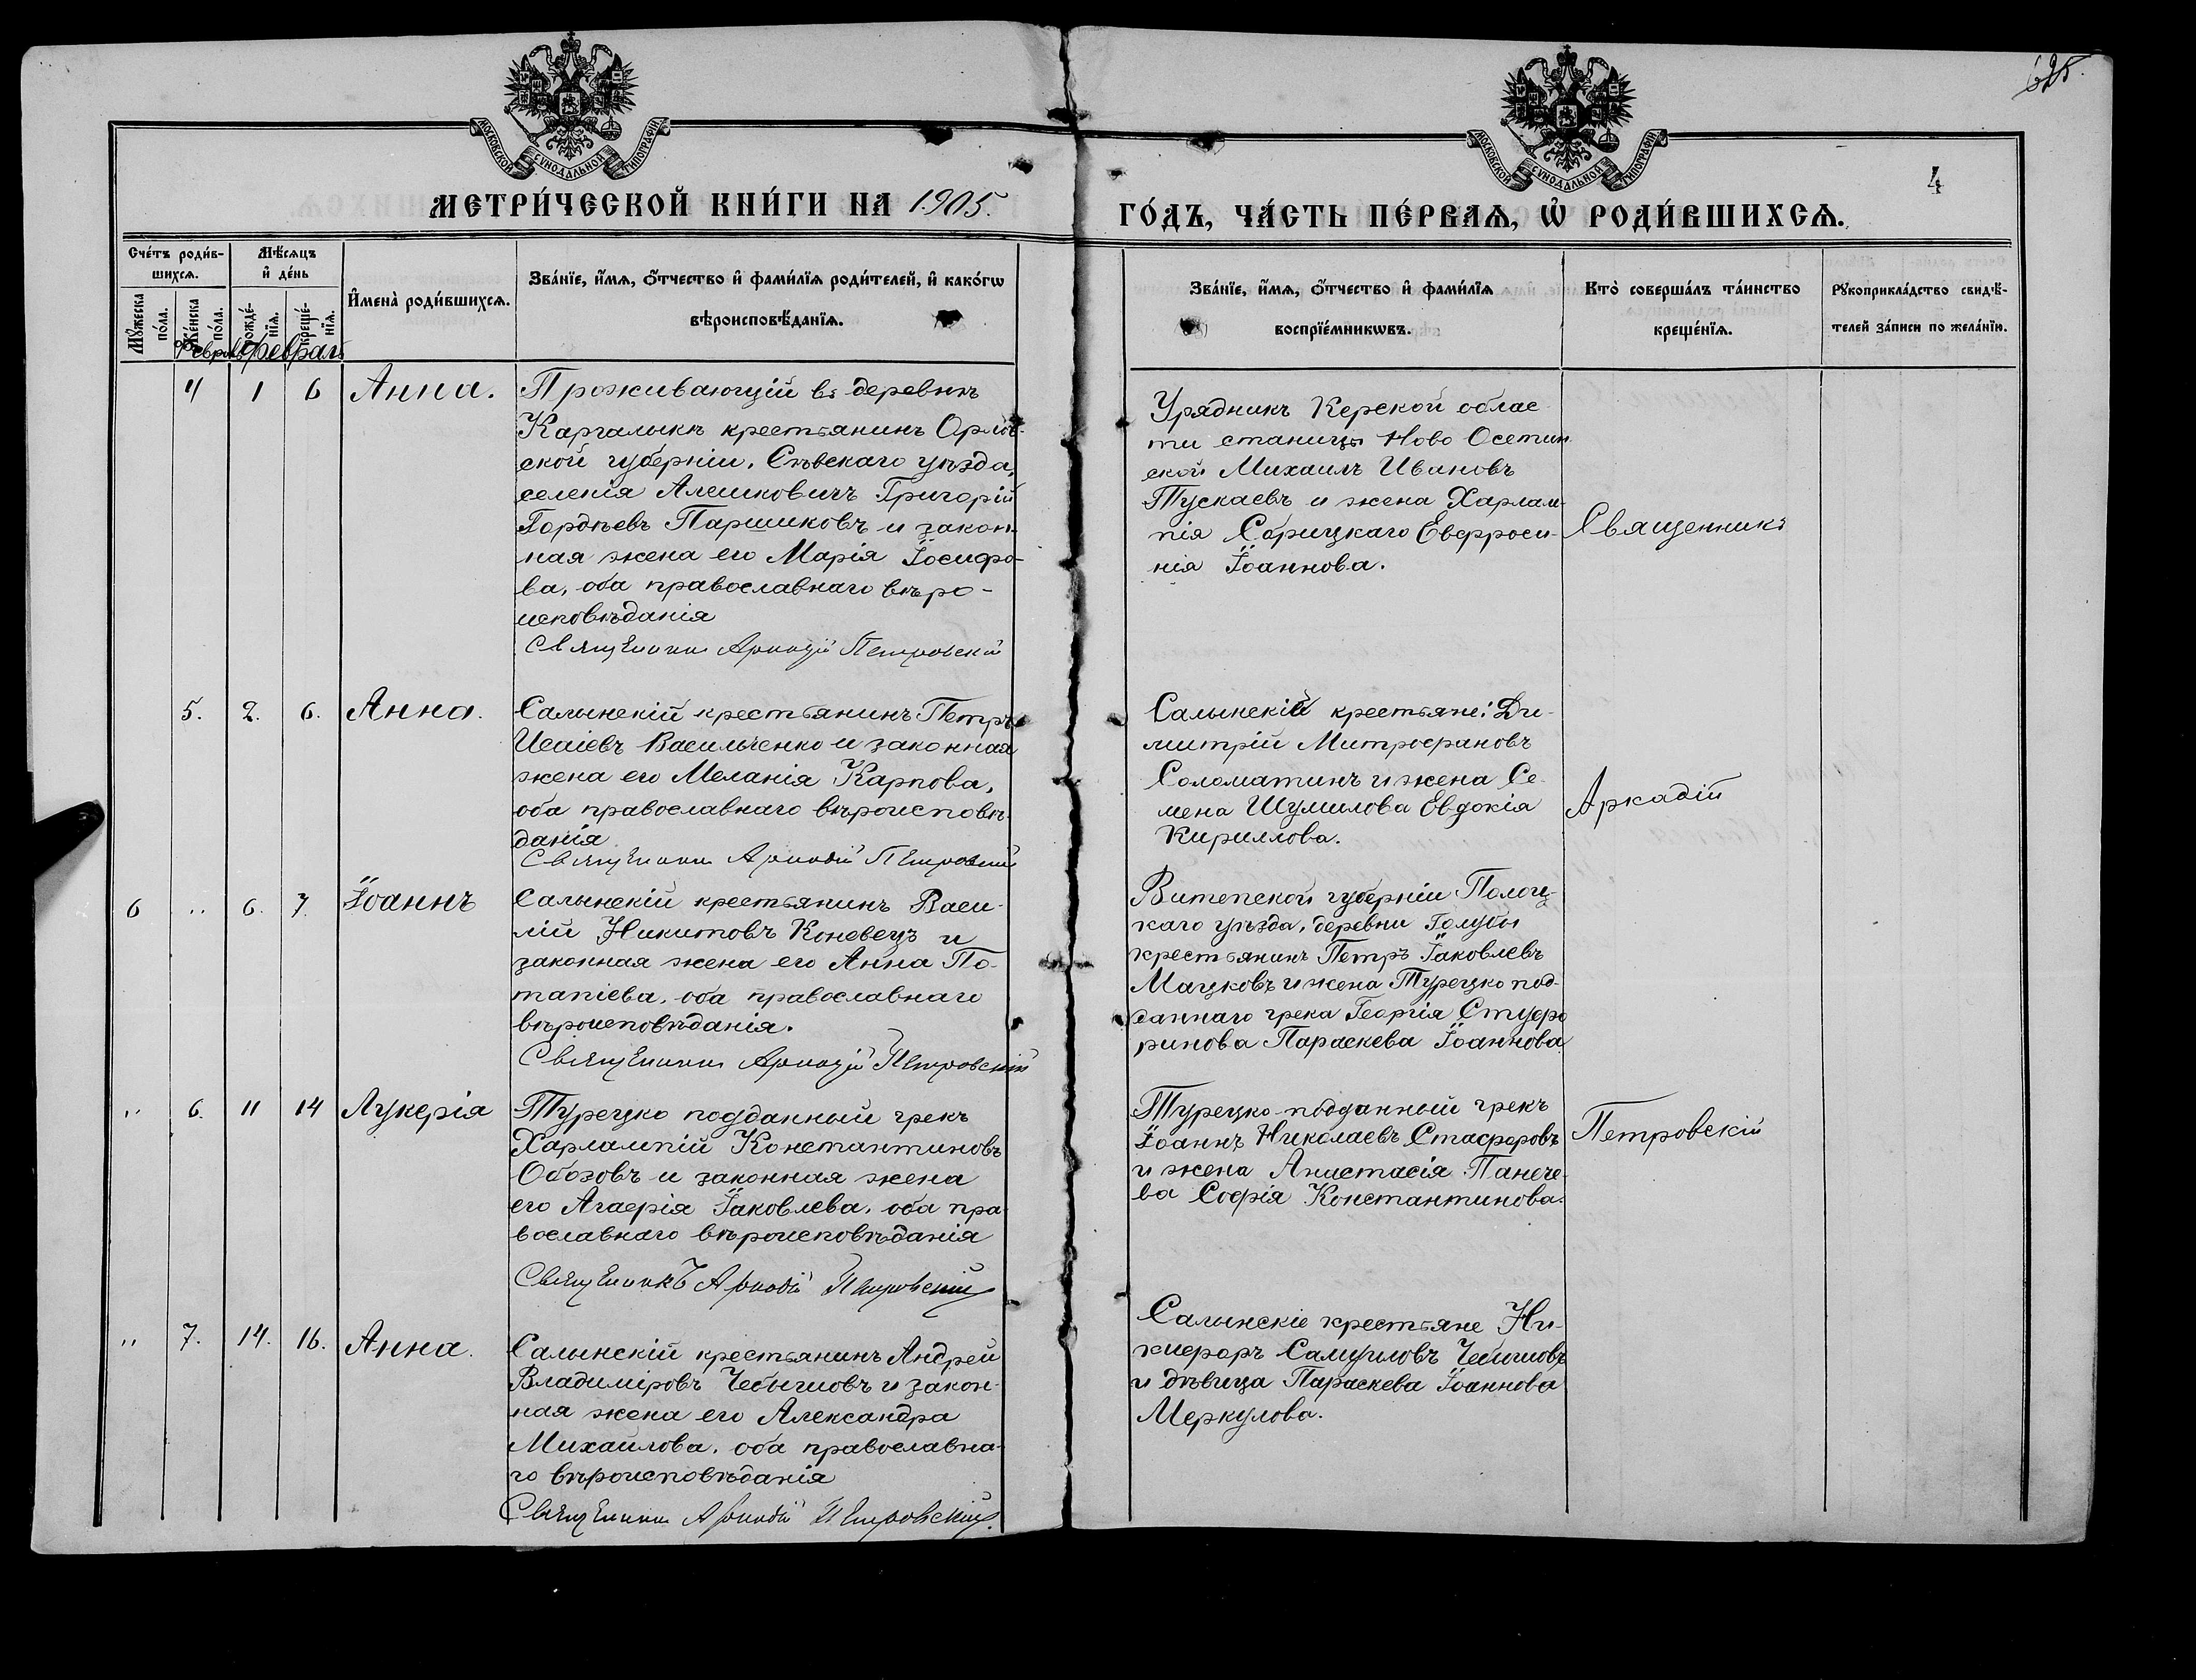 625.
МОСКОВСКОЙ СѴНОДАЛЬНОЙ ТИПОГРАФІИ
МОСКОВСКОЙ СѴНОДАЛЬНОЙ ТИПОГРАФІИ
4
МЕТРИ́ЧЕСКОЙ КНИ́ГИ НА 1905.
ГО́ДЪ, ЧА́СТЬ ПЕ́РВАѦ, Ѽ РОДИ́ВШИХСѦ.
Сче́тъ роди́в-
шихсѧ.
Мꙋ́жеска по́ла.
Же́нска по́ла.
Мѣ́сѧцъ
и҆ де́нь
рожде́-
нїѧ.
креще́-
нїѧ.
И҆мена̀ роди́вшихсѧ.
Зва́нїе, и҆́мѧ, ѻ҆́тчество и҆ фами́лїѧ роди́телей, и҆ како́гѡ
вѣроисповѣ́данїѧ.
Зва́нїе, и҆́мѧ, ѻ҆́тчество и҆ фами́лїѧ
воспрїе́мникѡвъ.
Кто̀ соверша́лъ та́инство
креще́нїѧ.
Рꙋкоприкла́дство свидѣ́-
телей за́писи по жела́нїю.
Февраль
4 1 6 Анна.
Проживающій въ деревнѣ
Каргалыкѣ крестьянинъ Орлов-
ской губерніи, Сѣвскаго уѣзда,
селенія Алешковичъ Григорій
Гордѣевъ Паршиковъ и закон-
ная жена его Марія Іосифо-
ва, оба православнаго вѣро-
исповѣданія
Священникъ Аркадій Петровскій
Урядникъ Керской облас-
ти станицы Ново Осетин
ской Михаилъ Ивановъ
Тускаевъ и жена Харлам-
пія Сорицкаго Евфроси-
нія Іоаннова.
Священникъ
5. 2. 6. Анна.
Салынскій крестьянинъ Петръ
Исаіевъ Васильченко и законная
жена его Меланія Карпова,
оба православнаго вѣроисповѣ-
данія
Священникъ Аркадій Петровскій
Салынскій крестьяне: Ди-
митрій Митрофановъ
Соломатинъ и жена Се-
мена Шумилова Евдокія
Кириллова.
Аркадій
6 " 6. 7. Іоаннъ
Салынскій крестьянинъ Васи-
лій Никитовъ Коневецъ и
законная жена его Анна По-
тапіева, оба православнаго
вѣроисповѣданія.
Священникъ Аркадій Петровскій
Витепской губерніи Полоц-
каго уѣзда, деревни Голубы
крестьянинъ Петръ Іаковлевъ
Мацковъ и жена Турецко под-
даннаго грека Георгія Стуфо
ринова Параскева Іоаннова
" 6. 11 14 Лукерія
Турецко подданный грекъ
Харлампій Константиновъ
Обозовъ и законная жена
его Агафія Іаковлева, оба пра-
вославнаго вѣроисповѣданія
Священникъ Аркадій Петровскій
Турецко-подданный грекъ
Іоаннъ Николаевъ Стафоровъ
и жена Анастасія Панече-
ва Софія Константинова.
Петровскій
" 7. 14. 16. Анна.
Салынскій крестьянинъ Андрей
Владиміровъ Чебышовъ и закон-
ная жена его Александра
Михаилова, оба православна-
го вѣроисповѣданія
Священникъ Аркадій Петровскій.
Салынскіе крестьяне Ни-
кифоръ Самуиловъ Чебышовъ
и дѣвица Параскева Іоаннова
Меркулова.